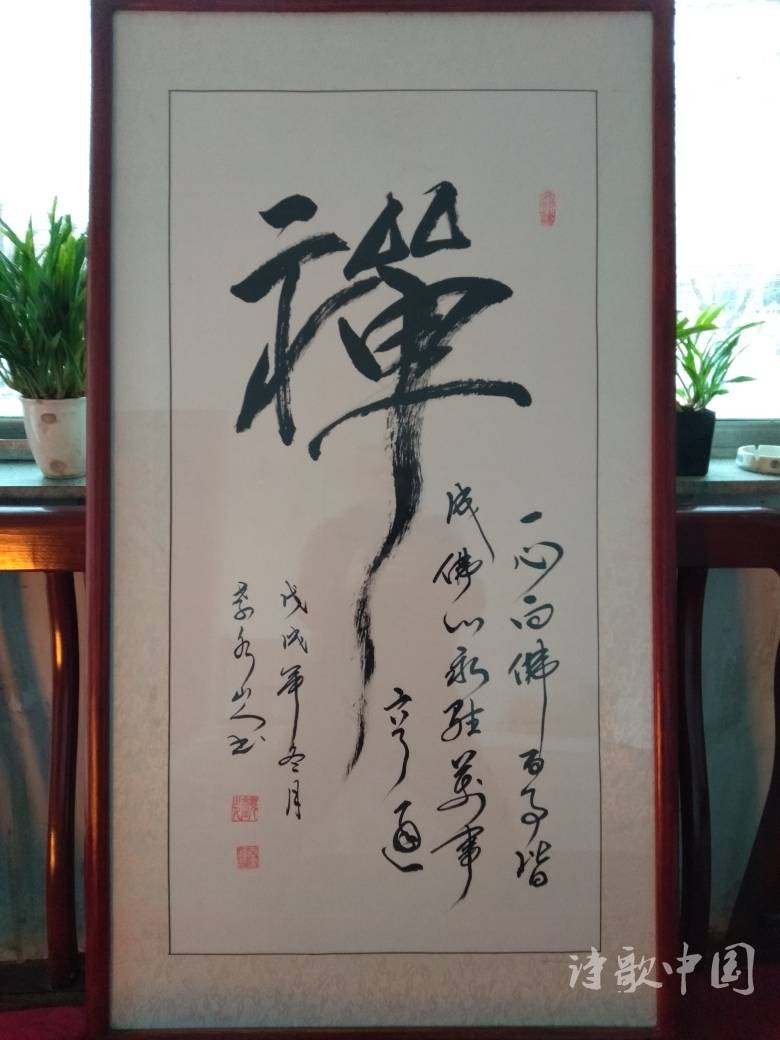 禪
一心向佛百事皆
成佛心永駐萬事
亨通
戊戌年冬月
山人书
诗歌中国